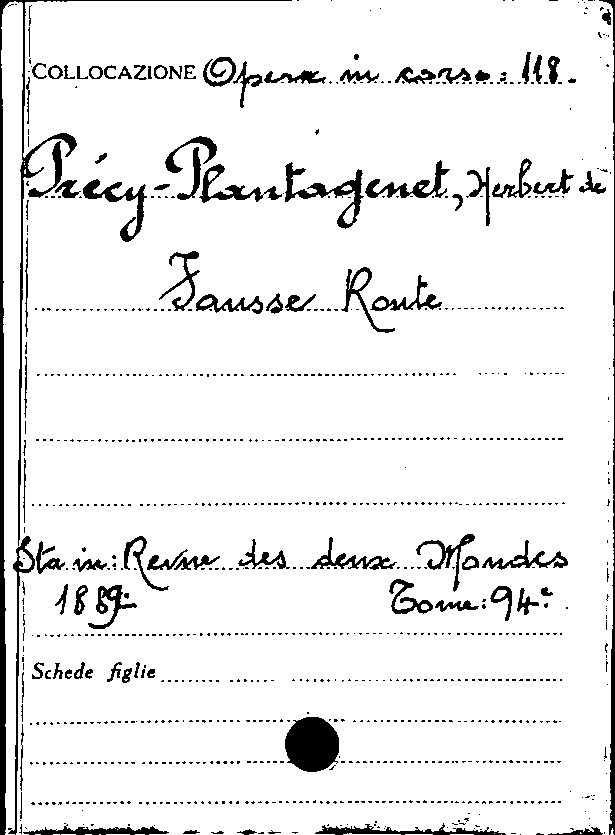 COLLOCAZIONE Opera in corso: 118.
Précy-Plantagenet, Herbert de
Fausse Route
Sta in: Revue des deux Mondes
1889: Tome: 94.e
Schede figlie